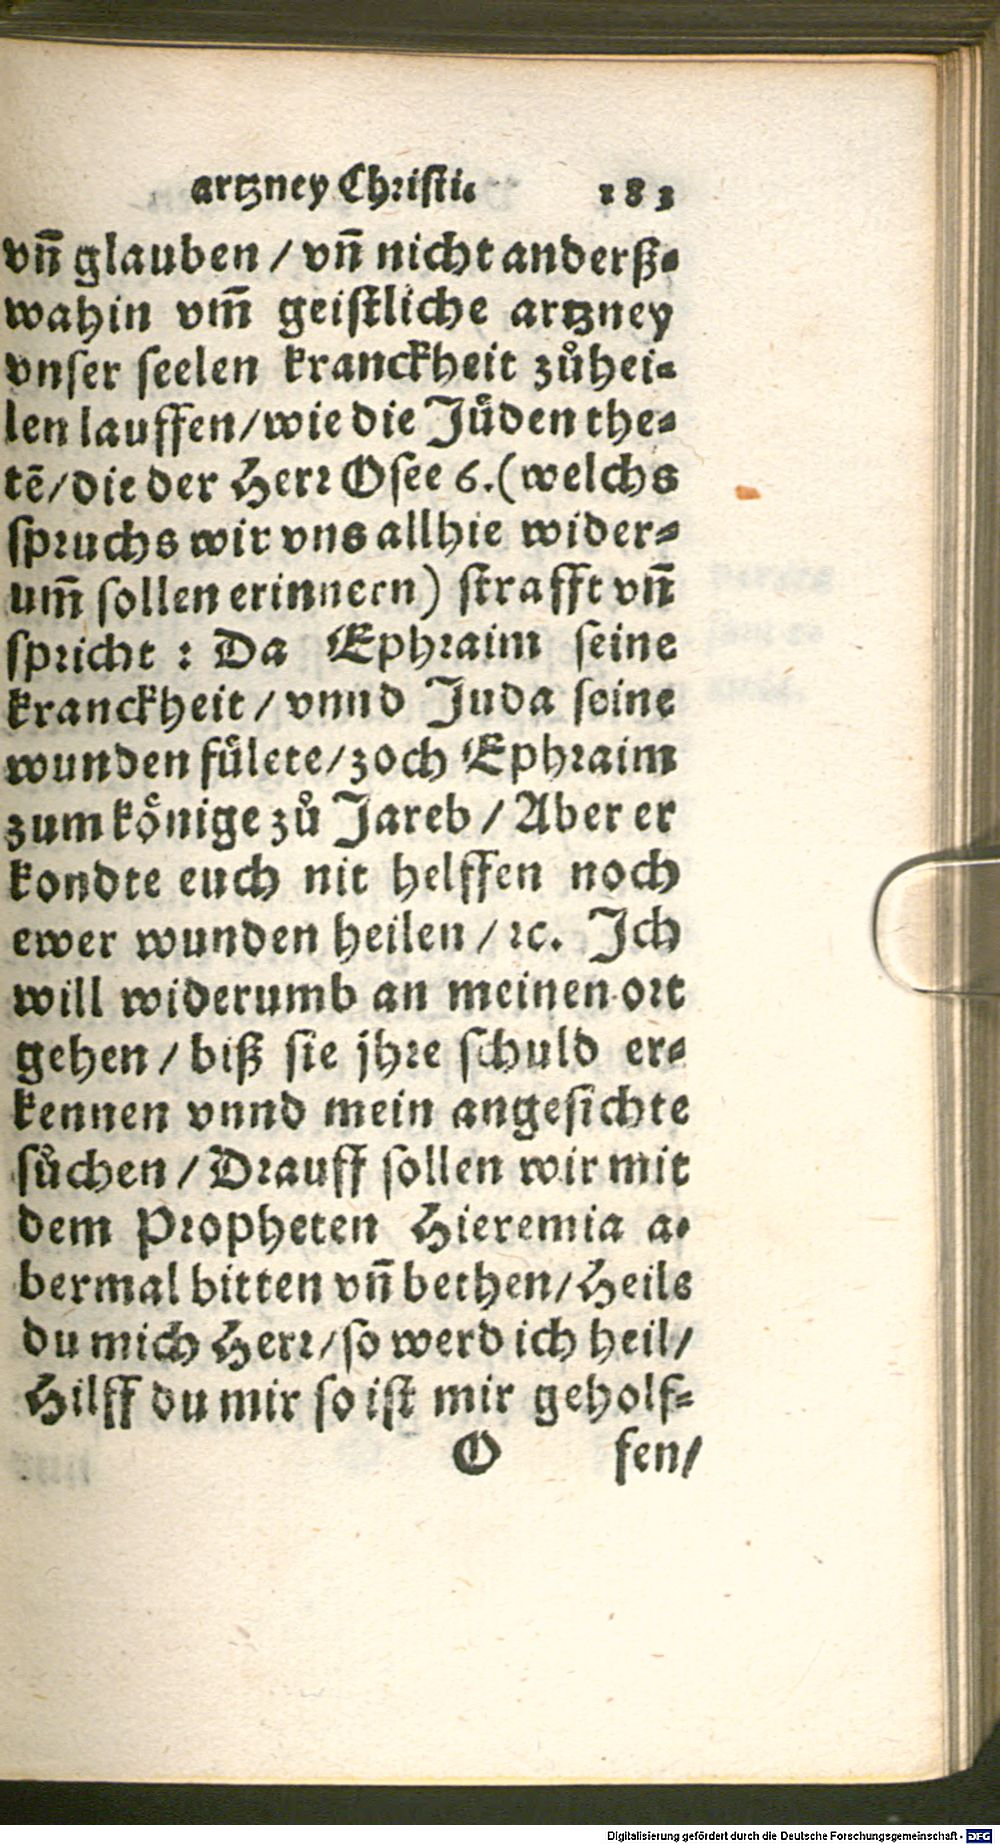 artzney Christi. 183
vn̄ glauben / vn̄ nicht anderß-
wahin vm̄ geistliche artzney
vnser seelen kranckheit zůhei-
len lauffen/wie die Jůden the-
tē/die der Herr Osee 6.(welchs
spruchs wir vns allhie wider-
um̄ sollen erinnern) strafft vn̄
spricht : Da Ephraim seine
kranckheit / vnnd Juda seine
wunden fůlete/zoch Ephraim
zum kőnige zů Jareb / Aber er
kondte euch nit helffen noch
ewer wunden heilen / ꝛc. Ich
will widerumb an meinen ort
gehen / biß sie jhre schuld er-
kennen vnnd mein angesichte
sůchen / Drauff sollen wir mit
dem Propheten Hieremia a-
bermal bitten vn̄ bethen/Heile
du mich Herr/so werd ich heil/
Hilff du mir so ist mir geholf-
O fen/
Digitalisierung gefördert durch die Deutsche Forschungsgemeinschaft - DFG